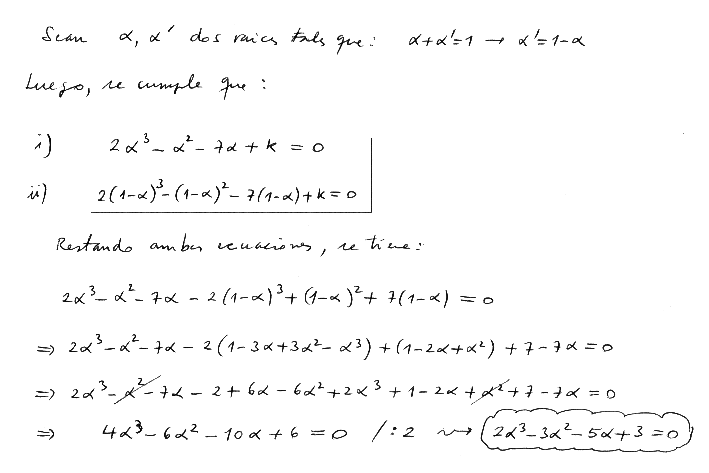 Sean α, α' dos raices tales que: α+α'=1 → α'=1-α
Luego, se cumple que :
i) 2α³ - α² - 7α + k = 0
ii) 2(1-α)³ - (1-α)² - 7(1-α) + k = 0
Restando ambas ecuaciones, se tiene:
2α³ - α² - 7α - 2(1-α)³ + (1-α)² + 7(1-α) = 0
⇒ 2α³ - α² - 7α - 2(1-3α+3α²-α³) + (1-2α+α²) + 7 - 7α = 0
⇒ 2α³ - α² - 7α - 2 + 6α - 6α² + 2α³ + 1 - 2α + α² + 7 - 7α = 0
⇒ 4α³ - 6α² - 10α + 6 = 0 /:2 ⇝ 2α³ - 3α² - 5α + 3 = 0